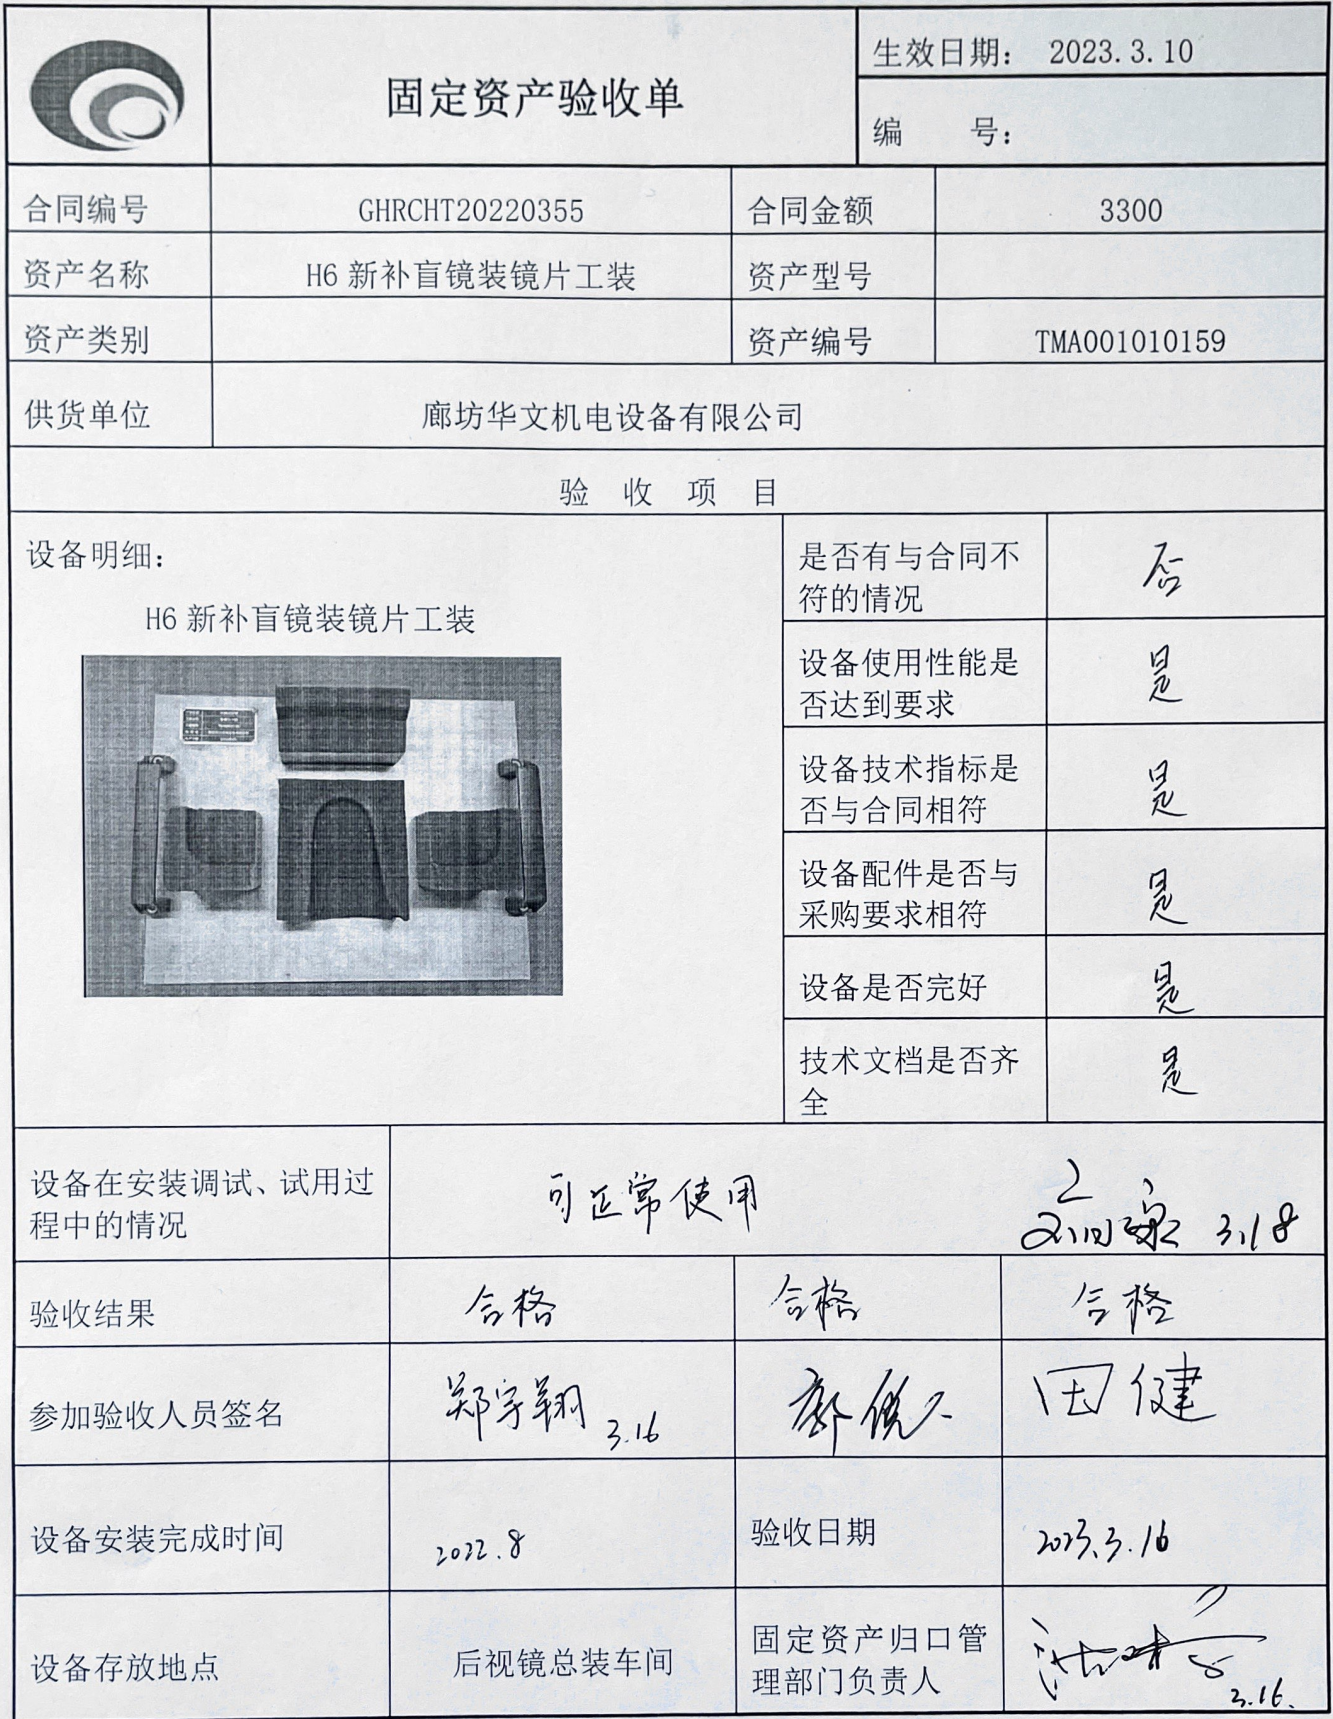 固定资产验收单
生效日期： 2023.3.10
编 号：
合同编号 GHRCHT20220355 合同金额 3300
资产名称 H6 新补盲镜装镜片工装 资产型号
资产类别 资产编号 TMA001010159
供货单位 廊坊华文机电设备有限公司
验 收 项 目
设备明细：
H6 新补盲镜装镜片工装
是否有与合同不
符的情况
否
设备使用性能是
否达到要求
是
设备技术指标是
否与合同相符
是
设备配件是否与
采购要求相符
是
设备是否完好 是
技术文档是否齐
全
是
设备在安装调试、试用过
程中的情况
可正常使用
3.18
验收结果 合格 合格 合格
参加验收人员签名 郑宇翔 3.16 田健
设备安装完成时间 2022.8 验收日期 2023.3.16
设备存放地点 后视镜总装车间
固定资产归口管
理部门负责人
3.16.